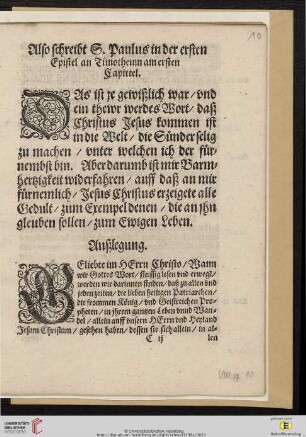 10
Also schreibt S. Paulus in der ersten
Epistel an Timotheum am ersten
Capittel.
DAs ist je gewißlich war / vnd
ein thewr werdes Wort / daß
Christus Jesus kommen ist
in die Welt / die Sünder selig
zu machen / vnter welchen ich der für-
nembst bin. Aber darumb ist mir Barm-
hertzigkeit widerfahren / auff daß an mir
fürnemlich / Jesus Christus erzeigete alle
Gedult / zum Exempel denen / die an jhn
gleuben sollen / zum Ewigen Leben.
Außlegung.
GEliebte im HErrn Christo / Wann
wir Gottes Wort / fleissig lesen vnd erwegẽ /
werden wir darinnen finden / daß zu allen vnd
jeden zeiten / die lieben heiligen Patriarchen /
die frommen König / vnd Geistreichen Pro-
pheten / in jhrem gantzen Leben vnnd Wan-
del / allein auff vnsern HErrn vnd Heyland
Jesum Christum / gesehen haben / dessen sie sich allein / in al-
C ij
len
UNIVERSITÄTS-
BIBLIOTHEK
HEIDELBERG
© Universitätsbibliothek Heidelberg